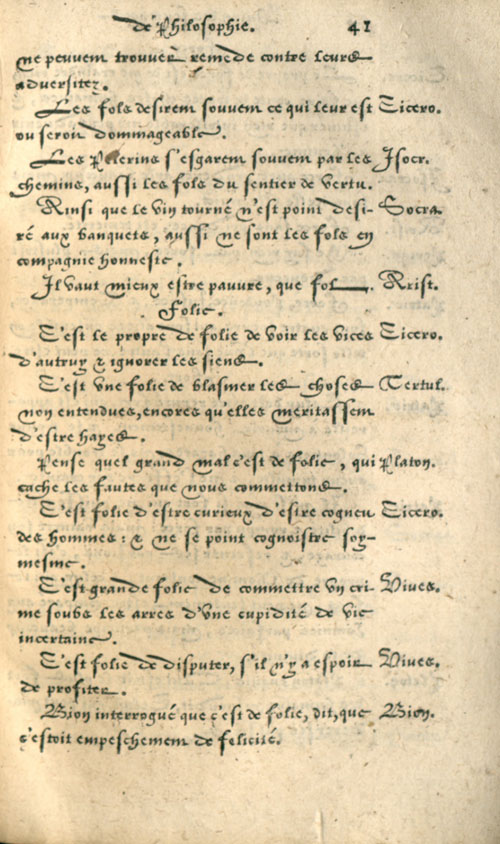 de Philosophie. 41
ne peuvent trouver remede contre leurs
adversitez.
Les fols desirent souvent ce qui leur est Cicero.
ou seroit dommageable.
Les Pelerins s'esgarent souvent par les Isocr.
chemins, aussi les fols du sentier de vertu.
Ainsi que le vin tourné n'est point desi- Socra.
ré aux banquets, aussi ne sont les fols en
compagnie honneste.
Il vaut mieux estre pauvre, que fol. Arist.
Folie.
C'est le propre de folie de voir les vices Cicero.
d'autruy & ignorer les siens.
C'est vne folie de blasmer les choses Tertul.
non entendues, encores qu'elles meritassent
d'estre hayes.
Pense quel grand mal c'est de folie, qui Platon.
cache les fautes que nous commettons.
C'est folie d'estre curieux d'estre cogneu Cicero.
des hommes: & ne se point cognoistre soy-
mesme.
C'est grande folie de commettre vn cri- Vives.
me soubs les arres d'vne cupidité de vie
incertaine.
C'est folie de disputer, s'il n'y a espoir Vives.
de profiter.
Bion interrogué que c'est de folie, dit, que Bion.
c'estoit empeschement de felicité.